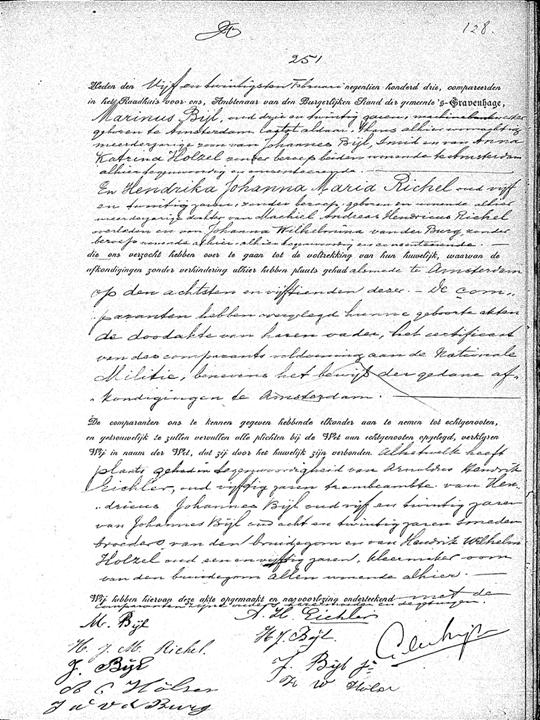 128.
251
Heden den Vijf en twintigsten Februari negentien honderd drie, compareerden
in het Raadhuis voor ons, Ambtenaar van den Burgerlijken Stand der gemeente 's-Gravenhage,
Marinus Bijl, oud drie en twintig jaren,
geboren te Amsterdam laatst aldaar thans alhier woonachtig
meerderjarige zoon van Johannes Bijl, Smid en van Anna
Katrina Holzel zonder beroep beiden wonende te Amsterdam
alhier tegenwoordig en consenteerende
En Hendrika Johanna Maria Richel oud vijf
en twintig jaren, zonder beroep geboren en wonende alhier
meerderjarige dochter van Machiel Andreas Hendricus Richel
overleden en van Johanna Wilhelmina van der Burg, zonder
beroep wonende alhier, alhier tegenwoordig en consenteerende
die ons verzocht hebben over te gaan tot de voltrekking van hun huwelijk, waarvan de
afkondigingen zonder verhindering alhier hebben plaats gehad alsmede te Amsterdam
op den achtsten en vijftienden dezer. - De com-
paranten hebben overgelegd hunne geboorte akten
de doodakte van haren vader, het certificaat
van des comparants voldoening aan de Nationale
Militie, benevens het bewijs der gedane af-
kondigingen te Amsterdam.
De comparanten ons te kennen gegeven hebbende elkander aan te nemen tot echtgenooten,
en getrouwelijk te zullen vervullen alle plichten bij de Wet aan echtgenooten opgelegd, verklaren
Wij in naam der Wet, dat zij door het huwelijk zijn verbonden. Alhetwelk heeft
plaats gehad in tegenwoordigheid van Arnoldus Hendrik
Eichler, oud vijftig jaren trambeambte van Hen-
dricus Johannes Bijl oud vijf en twintig jaren
van Johannes Bijl oud acht en twintig jaren smeden
broeders van den bruidegom en van Hendrik Wilhelm
Holzel oud een en vijftig jaren, kleermaker oom
van den bruidegom allen wonende alhier.
Wij hebben hiervan deze akte opgemaakt en na voorlezing onderteekend met de
comparanten
M. Bijl
A. H. Eichler
H. J. M. Richel.
H J. Bijl
J. Bijl
J. Bijl Jr
H W Hölzer
J W v d Burg